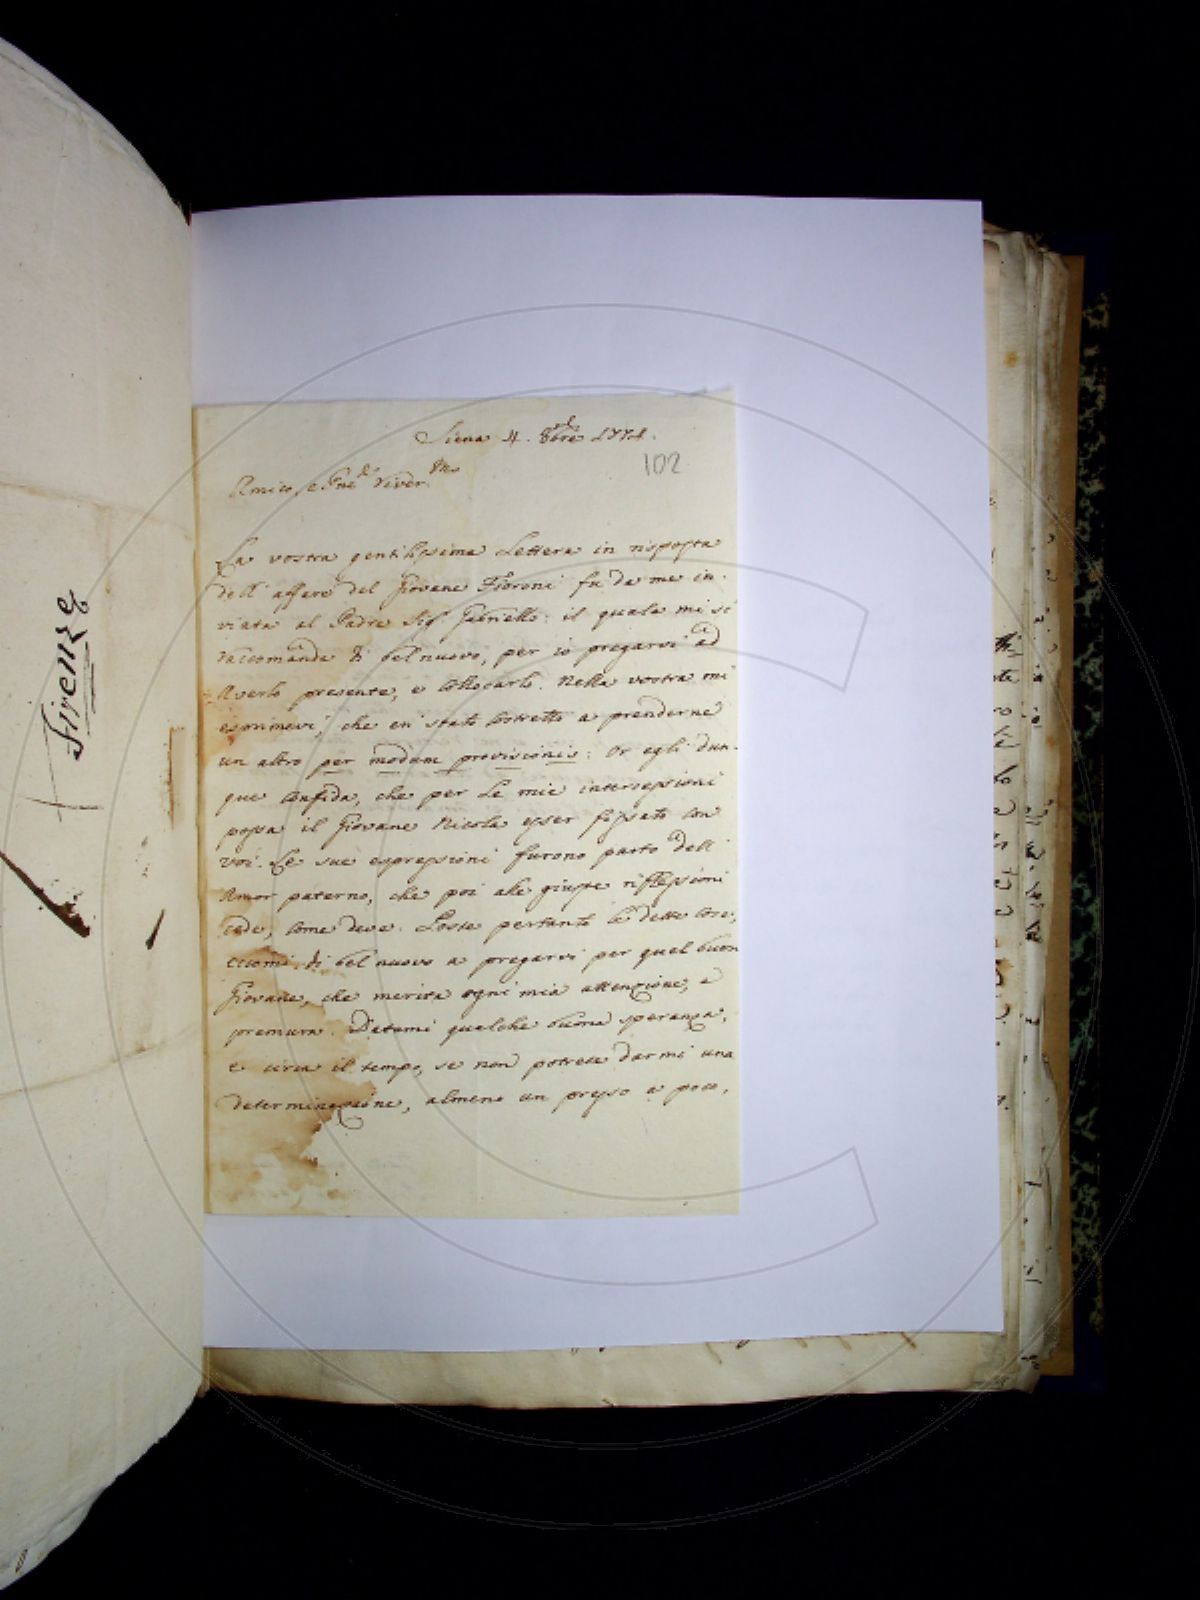 Firenze
Siena 4. 8bre 1774.
102
Amico, e Pne river.mo
La vostra gentilissima Lettera in risposta
dell' affare del Giovane Fioroni fu da me in-
viata al Padre Sig.r Gabriello: il quale mi si
raccomanda di bel nuovo, per io pregarvi ad
averlo presente, e collocarlo. Nella vostra mi
esprimevi, che eri stato costretto a prenderne
un altro per modum provisionis: Or egli dun-
que confida, che per le mie intercessioni
possa il Giovane Nicola esser fissato con
voi. Le sue espressioni furono parto dell'
Amor paterno, che poi alle giuste riflessioni
cede, come deve. Poste pertanto le dette cose,
eccomi di bel nuovo a pregarvi per quel buon
Giovane, che merita ogni mia attenzione, e
premura. Datemi qualche buona speranza,
e circa il tempo, se non potrete darmi una
determinazione, almeno un presso a poco,